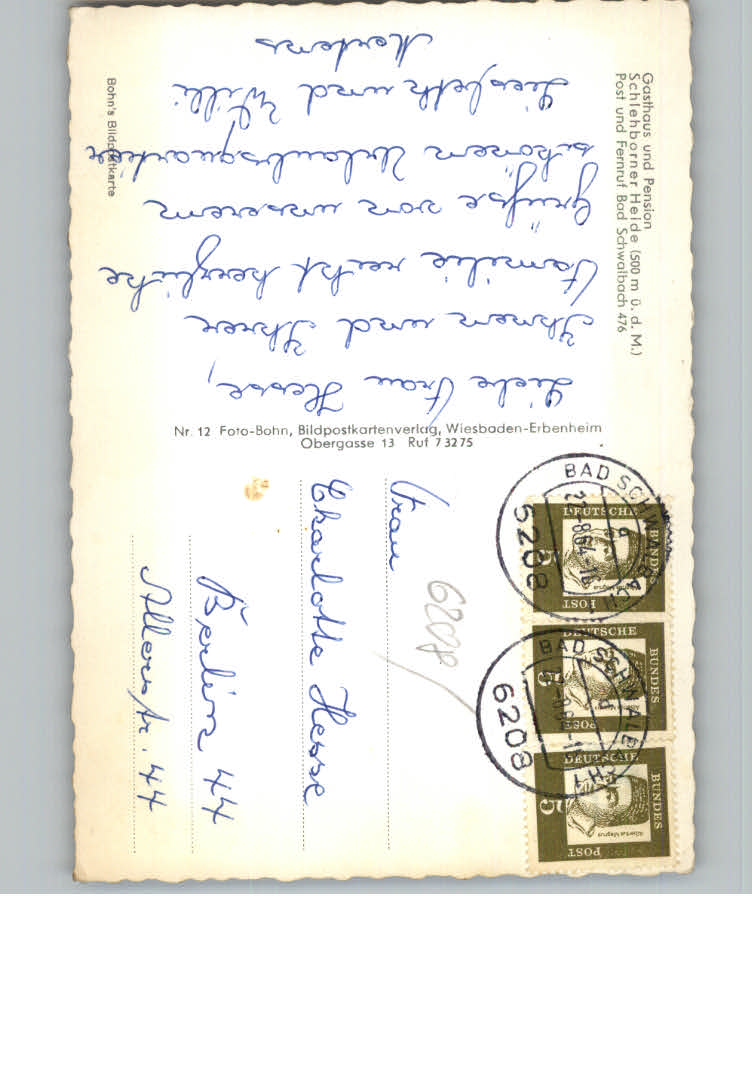 Gasthaus und Pension
Schlehborner Heide (500 m ü. d. M.)
Post und Fernruf Bad Schwalbach 476
Liebe Frau Hesse,
Ihnen und Ihrer
Familie recht herzliche
Grüße von unserem
schönen Urlaubsquartier
Liesbeth und Willi
Mertens
Bohn's Bildpostkarte
Nr. 12 Foto-Bohn, Bildpostkartenverlag, Wiesbaden-Erbenheim
Obergasse 13 Ruf 73275
BAD SCHWALBACH
6208
DEUTSCHE
BUNDES
POST
5
BAD SCHWALBACH
6208
DEUTSCHE
BUNDES
POST
5
DEUTSCHE
BUNDES
POST
5
Albertus Magnus
6208
Frau
Charlotte Hesse
Berlin 44
Allerstr. 44